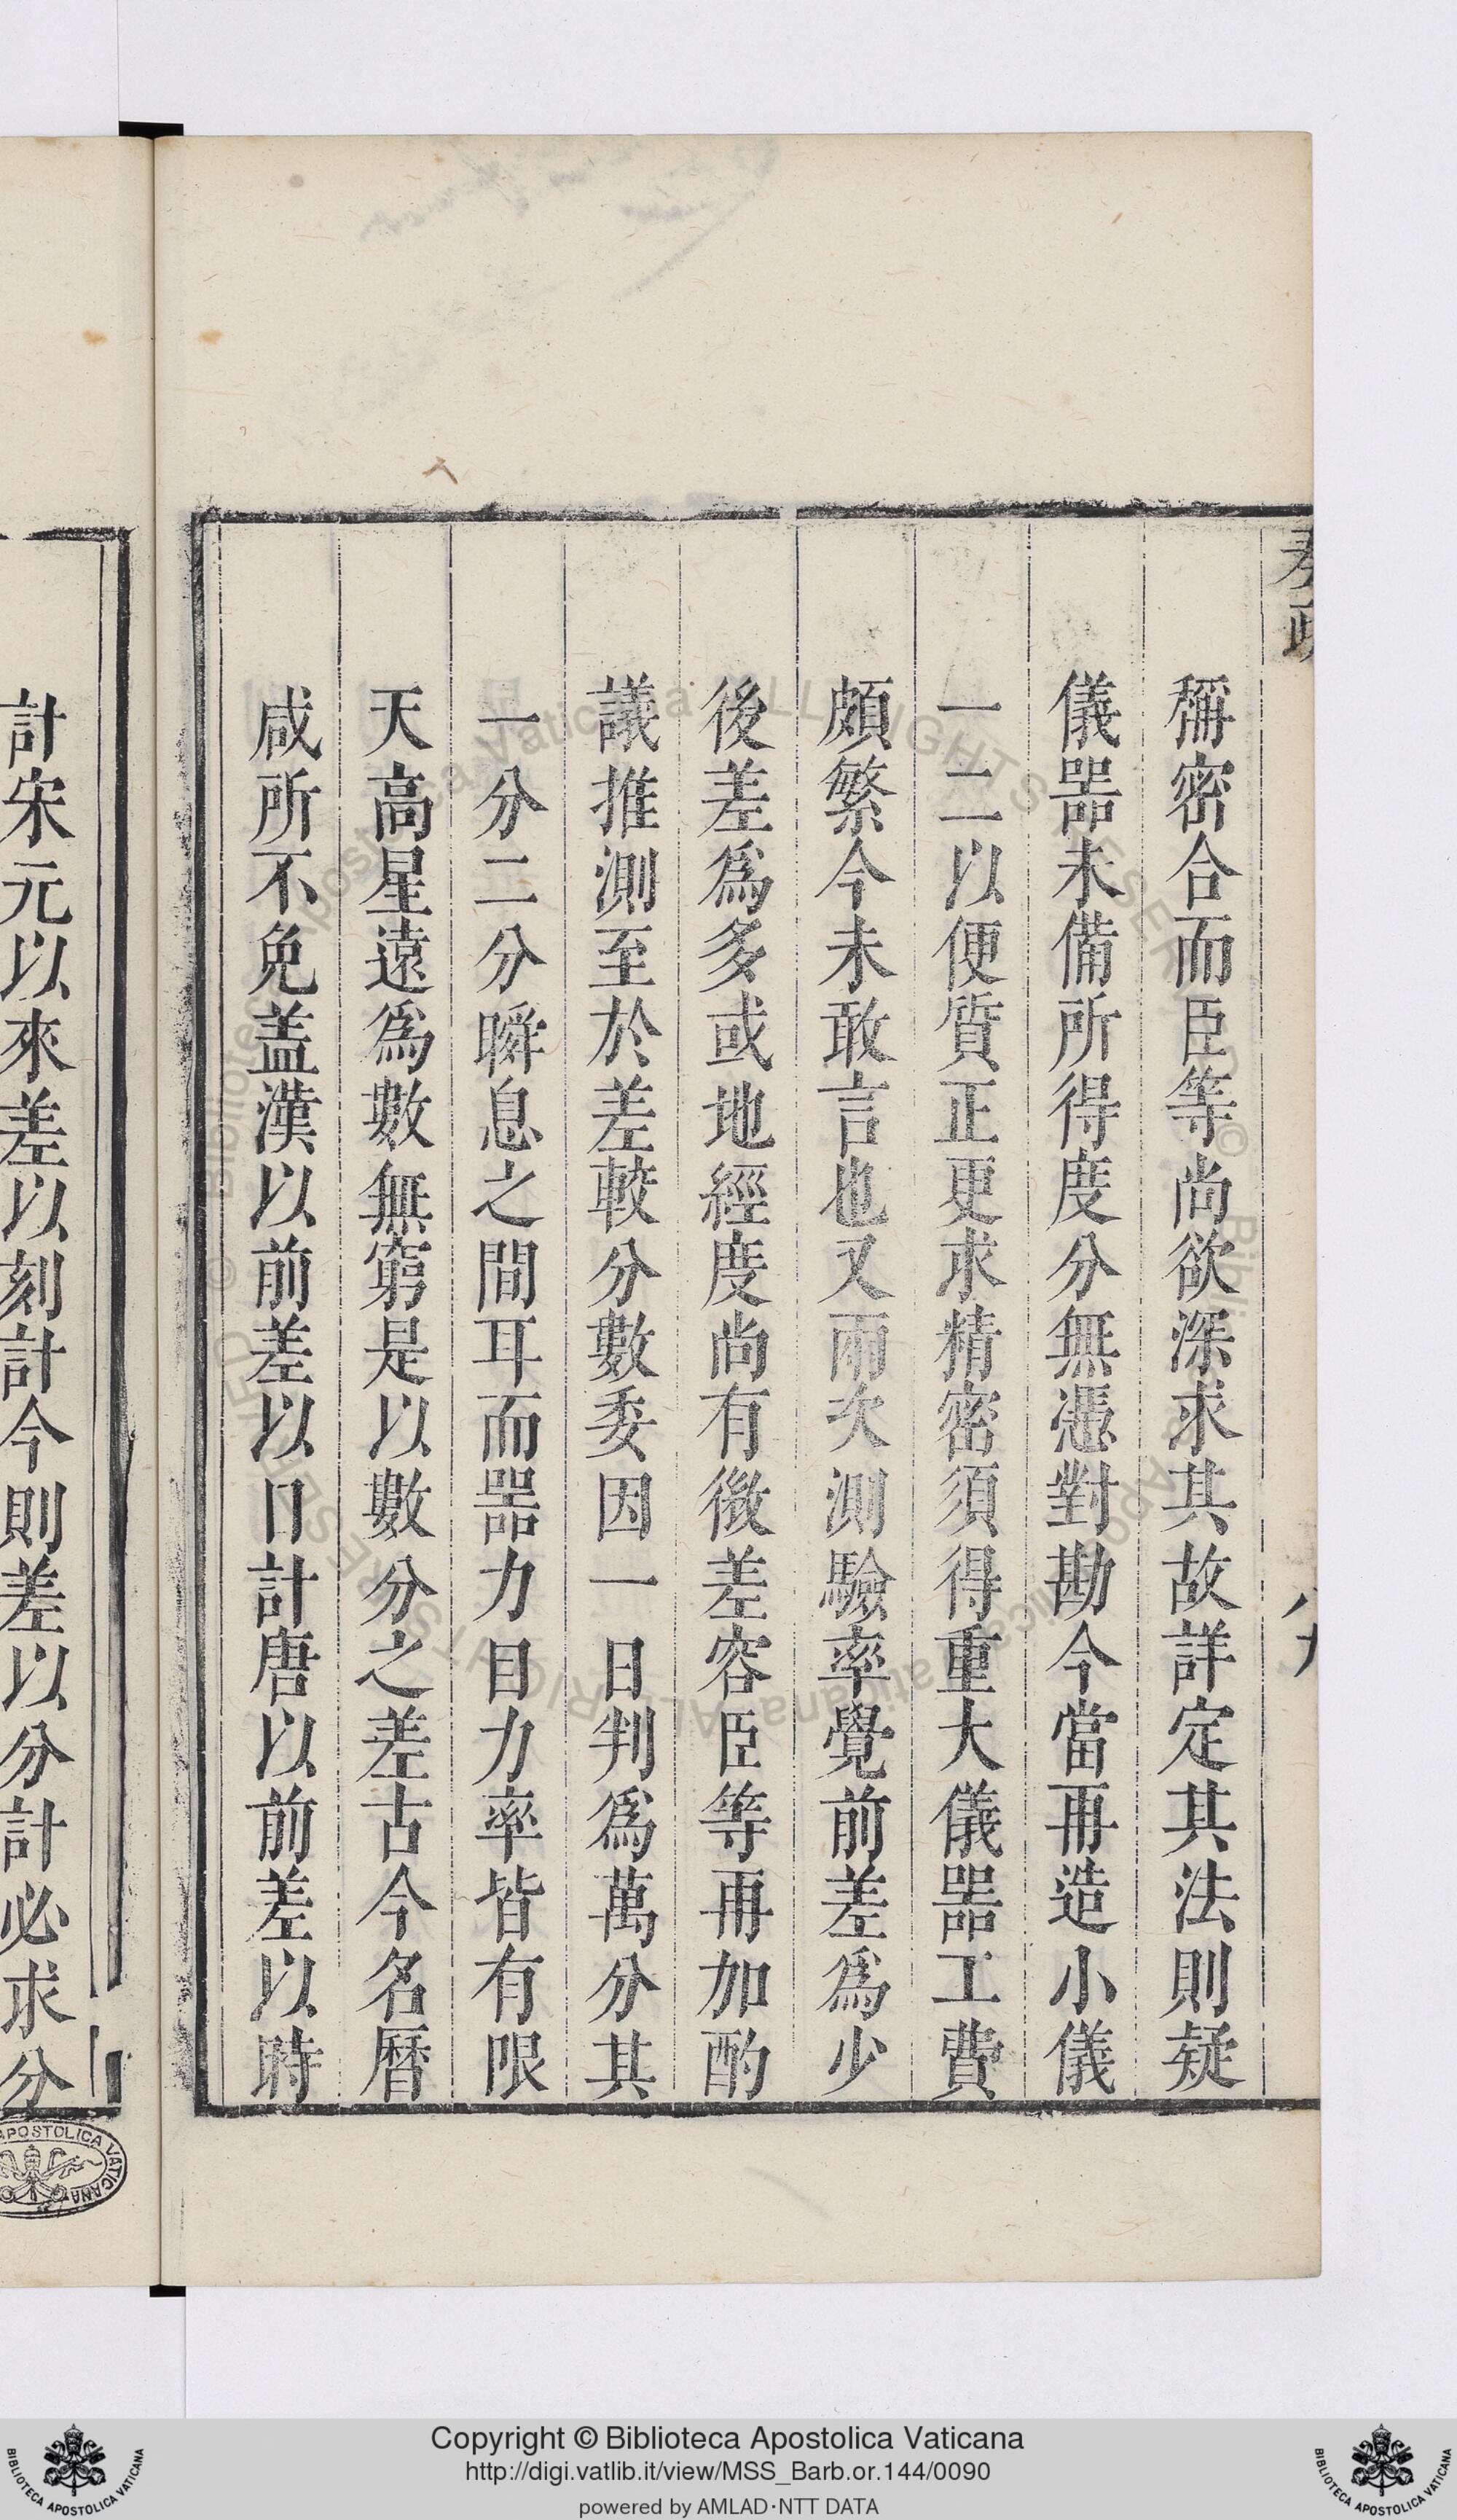 奏疏
八十九
稱密合而臣等尚欲深求其故詳定其法則疑
儀噐未備所得度分無憑對勘今當再造小儀
一二以便質正更求精密須得重大儀噐工費
頗繁今未敢言也又兩次測驗率覺前差爲少
後差爲多或地經度尚有微差容臣等再加酌
議推測至於差較分數委因一日判爲萬分其
一分二分瞬息之間耳而噐力目力率皆有限
天高星遠爲數無窮是以數分之差古今名曆
咸所不免盖漢以前差以日計唐以前差以時
計宋元以來差以刻計今則差以分計必求分
APOSTOLICA VATICANA
Copyright © Biblioteca Apostolica Vaticana
http://digi.vatlib.it/view/MSS_Barb.or.144/0090
powered by AMLAD·NTT DATA
BIBLIOTECA APOSTOLICA VATICANA
BIBLIOTECA APOSTOLICA VATICANA